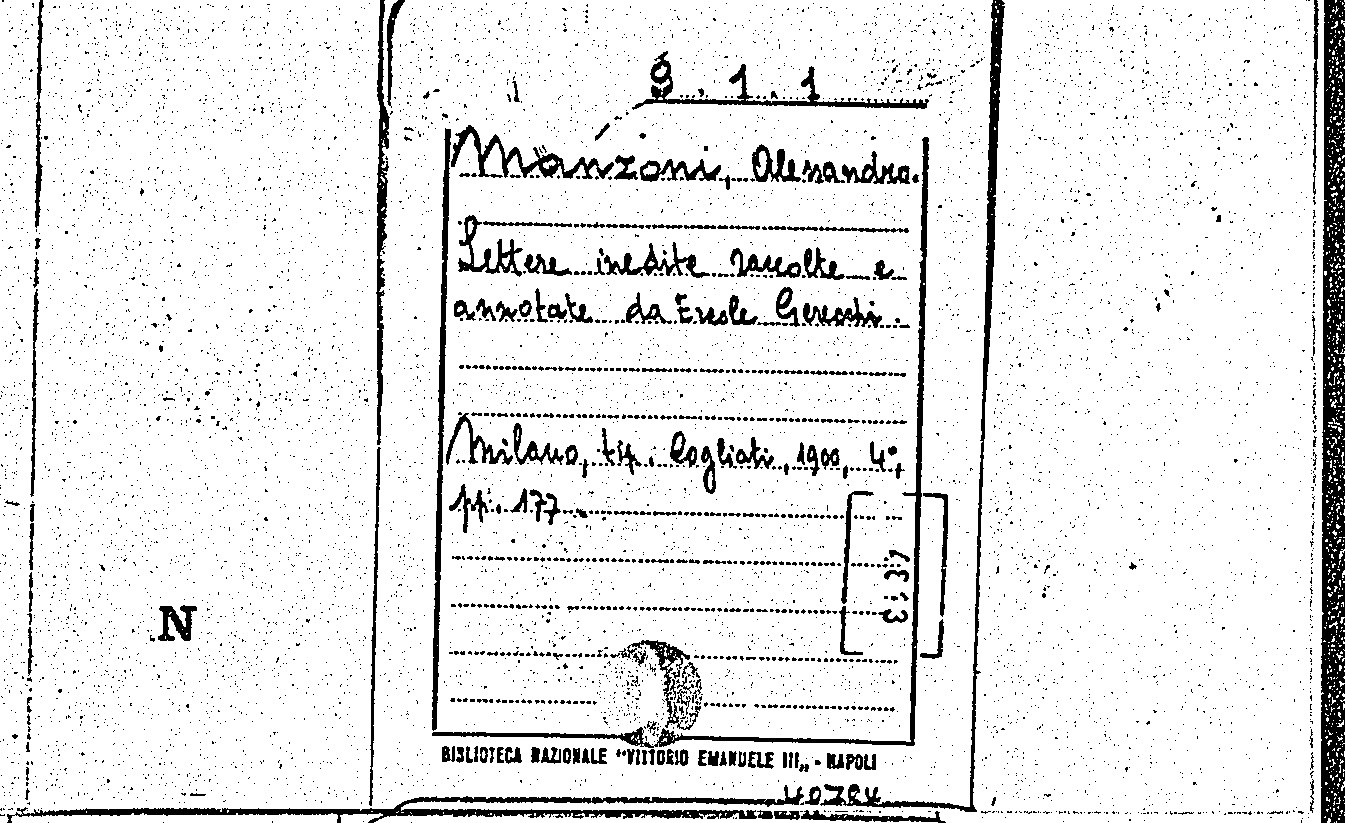 9.1.1
Manzoni, Alessandro.
Lettere inedite raccolte e
annotate da Ercole Gerecchi.
Milano, tip. Cogliati, 1900, 4°,
pp. 177.
N
BIBLIOTECA NAZIONALE "VITTORIO EMANUELE III„ - NAPOLI